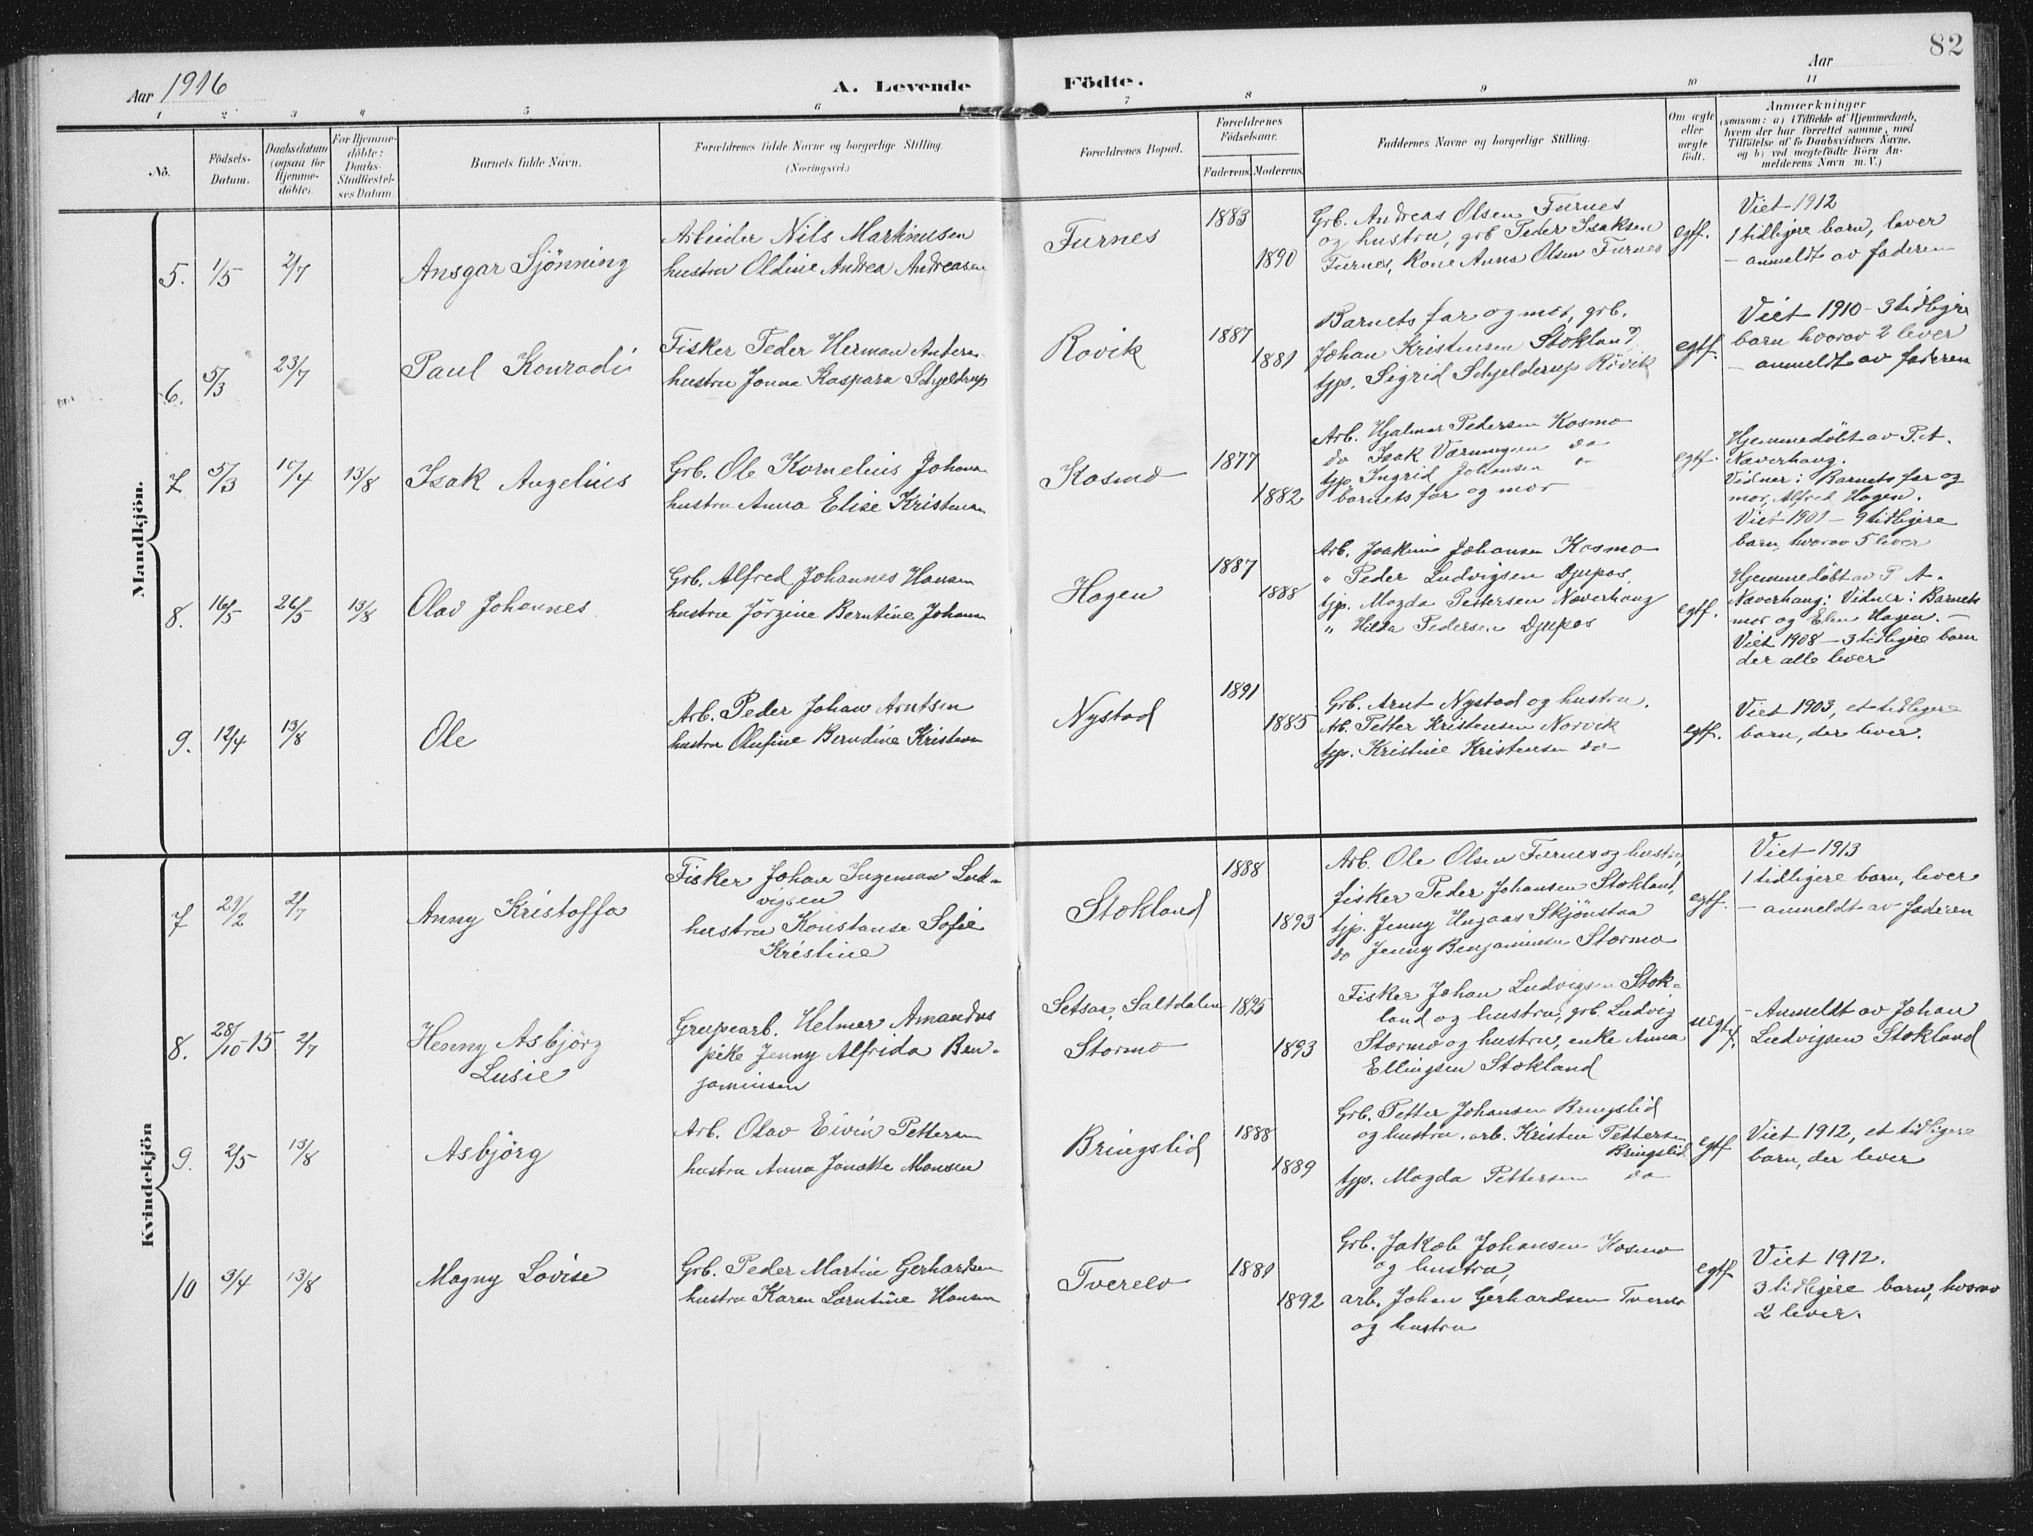 82
Aar 1916
A. Levende Födte.
Aar
1 2 3 4 5 6 7 8 9 10 11
No.
Födsels-Datum.
Daabsdatum (ogsaa for Hjemmedöbte).
For Hjemmedöbte: Daabs-Stadfæstelses Datum.
Barnets fulde Navn.
Forældrenes fulde Navne og borgerlige Stilling.
(Næringsvei.)
Forældrenes Bopæl.
Forældrenes Födselsaar.
Faderens. Moderens.
Faddernes Navne og borgerlige Stilling.
Om ægte eller uægte födt.
Anmærkninger
(saasom: a) i Tilfælde af Hjemmedaab,
hvem der har forrettet samme, med
Tilföielse af to Daabsvidners Navne,
og b) ved uegtefödte Börn An-
melderens Navn m. V.)
Mandkjön.
5. 1/5 2/7
Ansgar Sjönning
Arbeider Nils Martinusen
hustru Oldine Andrea Andreasen
Furnes
1883
1890
Grb. Andreas Olsen Furnes
og hustru, grb Peder Isaksen
Furnes, Kone Anna Olsen Furnes
egtf.
Viet 1912
1 tidligere barn, lever
- anmeldt av faderen
6. 5/3 23/7
Paul Konradi
Fisker Peder Herman
hustru Jonna Kaspara Schjeldrup
Røvik
1887
1881
Barnets far og mor, grb.
Johan Kristensen Stokland,
tjp. Sigrid Schjelderup Rövik
egtf.
Viet 1910 - 3 tidligere
barn hvorav 2 lever
- anmeldt av faderen
7. 5/3 10/4 13/8
Isak Angelius
Grb. Ole Kornelius Johans
hustru Anna Elise Kristensen
Kosmo
1877
1882
Arb. Hjalmar Pedersen Kosmo
do Isak do
tjp. Ingrid Johansen
barnets far og mor
egtf.
Hjemmedöbt av P. A.
Naverhaug.
Vidner: Barnets far og
mor, Alfred Hagen.
Viet 1901 - 9 tidligere
barn, hvorav 5 lever
8. 16/5 26/5 13/8
Olav Johannes
Grb. Alfred Johannes Hansen
hustru Jörgine Berntine Johans
Hagen
1887
1888
Arb. Joakim Johansen Kosmo
" Peder Ludvigsen Djupos,
tjp. Magda Pettersen Naverhaug
" Hilda Pedersen Djupos
egtf.
Hjemmedöbt av P. A.
Naverhaug; Vidner: Barnets
mor og Elen Hagen. -
Viet 1908 - 3 tidligere barn
der alle lever
9. 12/4 13/8
Ole
Arb. Peder Johan Arntsen
hustru Olufine Berndine Kristens
Nystad
1891
1885
Grb. Arnt Nystad og hustru.
Arb. Petter Kristensen Norvik
tjp. Kristine Kristensen do
egtf.
Viet 1903, et tidligere
barn, der lever.
Kvindekjön
7 21/2 2/7
Anny Kristoffa
Fisker Johan Ingeman Lud-
vigsen
hustru Konstanse Sofie
Kristine
Stokland
1888
1893
Arb. Ole Olsen Furnes og hustru,
fisker Peder Johansen Stokland,
tjp. Jenny Hugaas Skjönstaa
do Jenny Benjaminsen Stormo
egtf.
Viet 1913
1 tidligere barn, lever
- anmeldt av faderen
8. 28/10 15 2/7
Henny Asbjörg
Lusie
Grubearb. Helmer Amandus
pike Jenny Alfrida Ben-
jaminsen
Setsaa, Saltdalen
Stormo
1895
1893
Fisker Johan Ludvigsen Stok-
land og hustru, grb. Ludvig
Stormo og hustru, enke Anna
Ellingsen Stokland
uegtf.
- Anmeldt av Johan
Ludvigsen Stokland
9. 2/5 13/8
Asbjörg
Arb. Olav Eivin Pettersen
hustru Anna Jonette Monsen
Bringslid
1888
1889
Grb. Petter Johansen Bringslid
og hustru. arb. Kristine Pettersen
Bringslid
tjp. Magda Pettersen do
egtf
Viet 1912, et tidligere
barn, der lever
10 3/4 13/8
Magny Lovise
Grb. Peder Martin Gerhardsen
hustru Karen Larntine Hansen
Tverelv
1881
1892
Grb. Jakob Johansen Kosmo
og hustru,
arb. Johan Gerhardsen Tverelv
og hustru
egtf
Viet 1912.
3 tidligere barn, hvorav
2 lever.